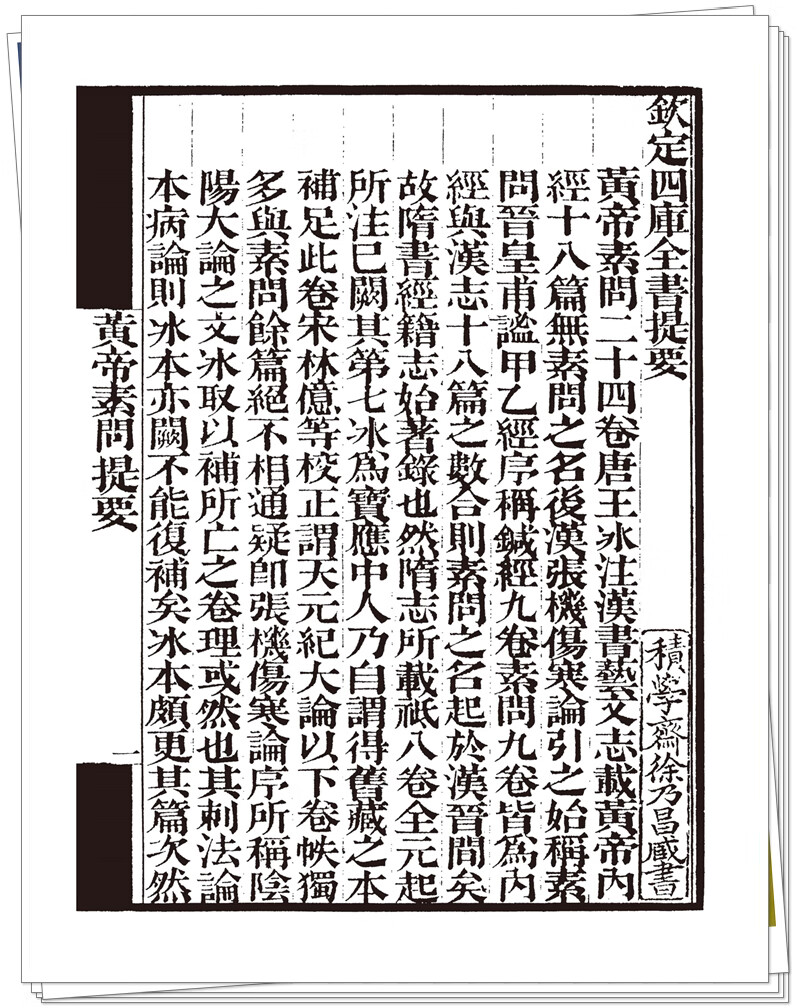 欽定四庫全書提要
積學齋徐乃昌藏書
黃帝素問二十四卷唐王冰注漢書藝文志載黃帝內
經十八篇無素問之名後漢張機傷寒論引之始稱素
問晉皇甫謐甲乙經序稱鍼經九卷素問九卷皆爲內
經與漢志十八篇之數合則素問之名起於漢晉間矣
故隋書經籍志始著錄也然隋志所載祗八卷全元起
所注已闕其第七冰爲寶應中人乃自謂得舊藏之本
補足此卷宋林億等校正謂天元紀大論以下卷帙獨
多與素問餘篇絕不相通疑卽張機傷寒論序所稱陰
陽大論之文冰取以補所亡之卷理或然也其刺法論
本病論則冰本亦闕不能復補矣冰本頗更其篇次然
黃帝素問提要
一